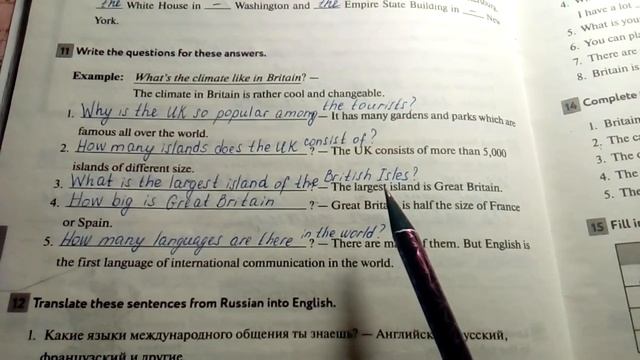 the White House in — Washington and the Empire State Building in ___ New
York.
11 Write the questions for these answers.
Example: What's the climate like in Britain? —
The climate in Britain is rather cool and changeable.
1. Why is the UK so popular among the tourists? — It has many gardens and parks which are
famous all over the world.
2. How many islands does the UK consist of? ? — The UK consists of more than 5,000
islands of different size.
3. What is the largest island of the British Isles? — The largest island is Great Britain.
4. How big is Great Britain ? — Great Britain is half the size of France
or Spain.
5. How many languages are there in the world? ? — There are of them. But English is
the first language of international communication in the world.
12 Translate these sentences from Russian into English.
1. Какие языки международного общения ты знаешь? — русский,
французский и другие.
I have a lot
5. What is you
6. You can pla
7. There are
8. Britain is
14 Complete
1. Britain
2. The ca
3. The
4. The
5. The
15 Fill in